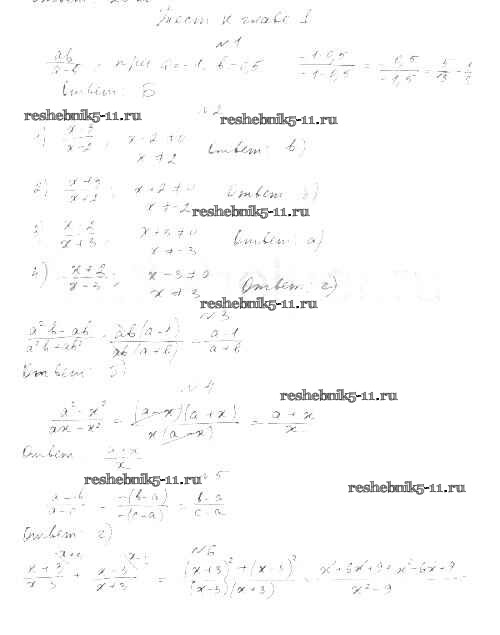 Тест к главе 1
№1
ab/a-b, при a=-1, b=0,5 -1·0,5/-1-0,5 = -0,5/-1,5 = 5/15 = 1/3
Ответ: Б
№2
reshebnik5-11.ru reshebnik5-11.ru
1) x-3/x-2; x-2≠0
x≠2 Ответ: в)
2) x+3/x+2; x+2≠0 Ответ:
x≠-2 reshebnik5-11.ru
3) x-2/x+3; x+3≠0
x≠-3 Ответ: а)
4) x+2/x-3; x-3≠0
x≠3 Ответ: г)
reshebnik5-11.ru
№3
a²b-ab²/a²b+ab² ab(a-1)/ab(a+1) a-1/a+1
Ответ:
№4
reshebnik5-11.ru
a²-x²/ax-x² = (a-x)(a+x)/x(a-x) = a+x/x
Ответ a+x/x
reshebnik5-11.ru №5
reshebnik5-11.ru
a-b/a-c = -(b-a)/-(c-a) = b-a/c-a
Ответ г)
№6
x+3/x-3 + x-3/x+3 = (x+3)²+(x-3)²/(x-3)(x+3) = x²+6x+9+x²-6x+9/x²-9